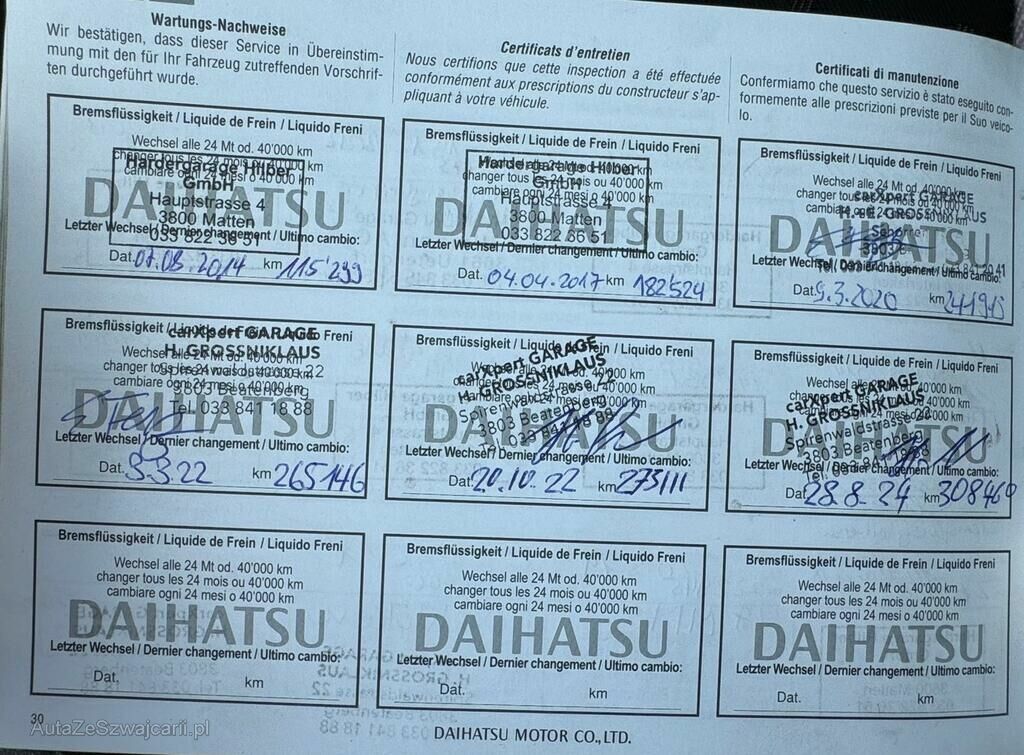 Wartungs-Nachweise
Wir bestätigen, dass dieser Service in Übereinstim-
mung mit den für Ihr Fahrzeug zutreffenden Vorschrif-
ten durchgeführt wurde.
Certificats d'entretien
Nous certifions que cette inspection a été effectuée
conformément aux prescriptions du constructeur s'ap-
pliquant à votre véhicule.
Certificati di manutenzione
Confermiamo che questo servizio è stato eseguito con-
formemente alle prescrizioni previste per il Suo veico-
lo.
Bremsflüssigkeit / Liquide de Frein / Liquido Freni
Wechsel alle 24 Mt od. 40'000 km
changer tous les 24 mois ou 40'000 km
cambiare ogni 24 mesi o 40'000 km
Hardergarage Hilber
GmbH
Hauptstrasse 4
3800 Matten
033 822 36 51
DAIHATSU
Letzter Wechsel / Dernier changement / Ultimo cambio:
Dat. 07.08.2014 km 115'299
Bremsflüssigkeit / Liquide de Frein / Liquido Freni
Wechsel alle 24 Mt od. 40'000 km
changer tous les 24 mois ou 40'000 km
cambiare ogni 24 mesi o 40'000 km
Hardergarage Hilber
GmbH
Hauptstrasse 4
3800 Matten
033 822 36 51
DAIHATSU
Letzter Wechsel / Dernier changement / Ultimo cambio:
Dat. 04.04.2017 km 182'524
Bremsflüssigkeit / Liquide de Frein / Liquido Freni
Wechsel alle 24 Mt od. 40'000 km
changer tous les 24 mois ou 40'000 km
cambiare ogni 24 mesi o 40'000 km
carXpert GARAGE
H. GROSSNIKLAUS
DAIHATSU
Letzter Wechsel / Dernier changement / Ultimo cambio:
Dat. 9.3.2020 km 241945
Bremsflüssigkeit / Liquide de Frein / Liquido Freni
Wechsel alle 24 Mt od. 40'000 km
changer tous les 24 mois ou 40'000 km
cambiare ogni 24 mesi o 40'000 km
carXpert GARAGE
H. GROSSNIKLAUS
Spirenwaldstrasse 22
3803 Beatenberg
Tel. 033 841 18 88
DAIHATSU
Letzter Wechsel / Dernier changement / Ultimo cambio:
Dat. 3.3.22 km 265146
Bremsflüssigkeit / Liquide de Frein / Liquido Freni
Wechsel alle 24 Mt od. 40'000 km
changer tous les 24 mois ou 40'000 km
cambiare ogni 24 mesi o 40'000 km
carXpert GARAGE
H. GROSSNIKLAUS
Spirenwaldstrasse 22
3803 Beatenberg
033 841 18 88
DAIHATSU
Letzter Wechsel / Dernier changement / Ultimo cambio:
Dat. 20.10.22 km 273111
Bremsflüssigkeit / Liquide de Frein / Liquido Freni
Wechsel alle 24 Mt od. 40'000 km
changer tous les 24 mois ou 40'000 km
cambiare ogni 24 mesi o 40'000 km
carXpert GARAGE
H. GROSSNIKLAUS
Spirenwaldstrasse 22
3803 Beatenberg
Tel. 033 841 18 88
DAIHATSU
Letzter Wechsel / Dernier changement / Ultimo cambio:
Dat. 28.8.24 km 308460
Bremsflüssigkeit / Liquide de Frein / Liquido Freni
Wechsel alle 24 Mt od. 40'000 km
changer tous les 24 mois ou 40'000 km
cambiare ogni 24 mesi o 40'000 km
DAIHATSU
Letzter Wechsel / Dernier changement / Ultimo cambio:
Dat. km
Bremsflüssigkeit / Liquide de Frein / Liquido Freni
Wechsel alle 24 Mt od. 40'000 km
changer tous les 24 mois ou 40'000 km
cambiare ogni 24 mesi o 40'000 km
DAIHATSU
Letzter Wechsel / Dernier changement / Ultimo cambio:
Dat. km
Bremsflüssigkeit / Liquide de Frein / Liquido Freni
Wechsel alle 24 Mt od. 40'000 km
changer tous les 24 mois ou 40'000 km
cambiare ogni 24 mesi o 40'000 km
DAIHATSU
Letzter Wechsel / Dernier changement / Ultimo cambio:
Dat. km
30
AutaZeSzwajcarii.pl
DAIHATSU MOTOR CO.,LTD.